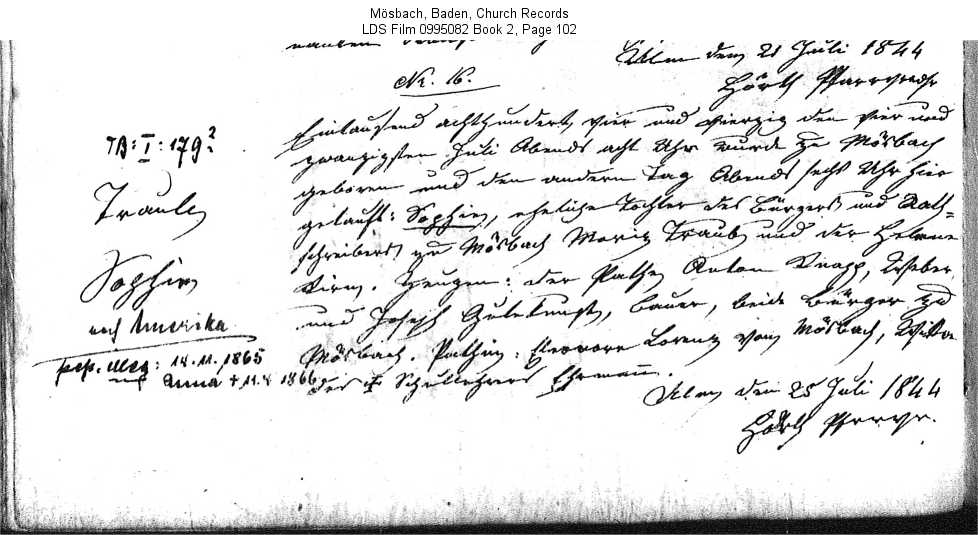 Mösbach, Baden, Church Records
LDS Film 0995082 Book 2, Page 102
Ulm den 21 Juli 1844
Hörth Pfarrverw.
Nr. 16.
Eintausend achthundert vier und vierzig den vier und
zwanzigsten Juli Abends acht Uhr wurde zu Mösbach
geboren und den andern Tag Abends sechs Uhr hier
getauft: Sophie, eheliche Tochter des Bürgers und Rath=
schreibers zu Mösbach Moriz Traub und der Helene
Zeugen: der Pathe Anton Knapp, Weber
und Joseph Gutekunst, Bauer, beide Bürger zu
Mösbach. Pathin: Eleonore Lorenz von Mösbach, Wittwe
des † Schullehrers Ehrmann.
Ulm den 25 Juli 1844
Hörth Pfarrv.
TB: I: 179?
Traub
Sophie
nach Amerika
14.11.1865
Anna + 11. 1866